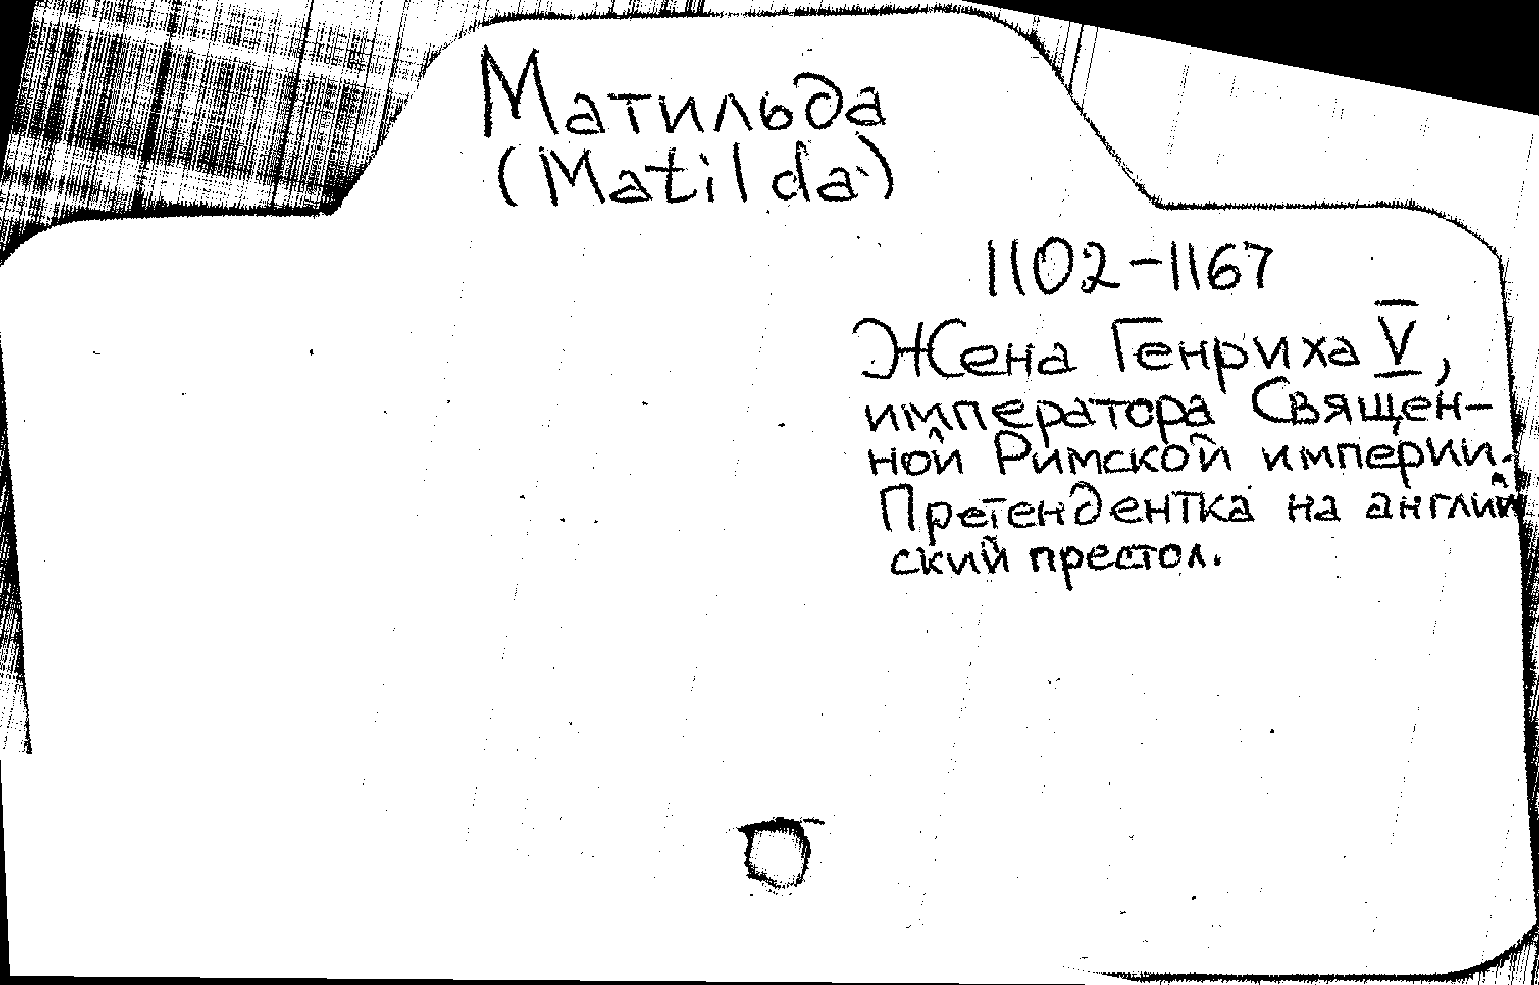 Матильда
(Matilda)
1102-1167
Жена Генриха V,
императора Священ-
ной Римской империи.
Претендентка на англий
ский престол.